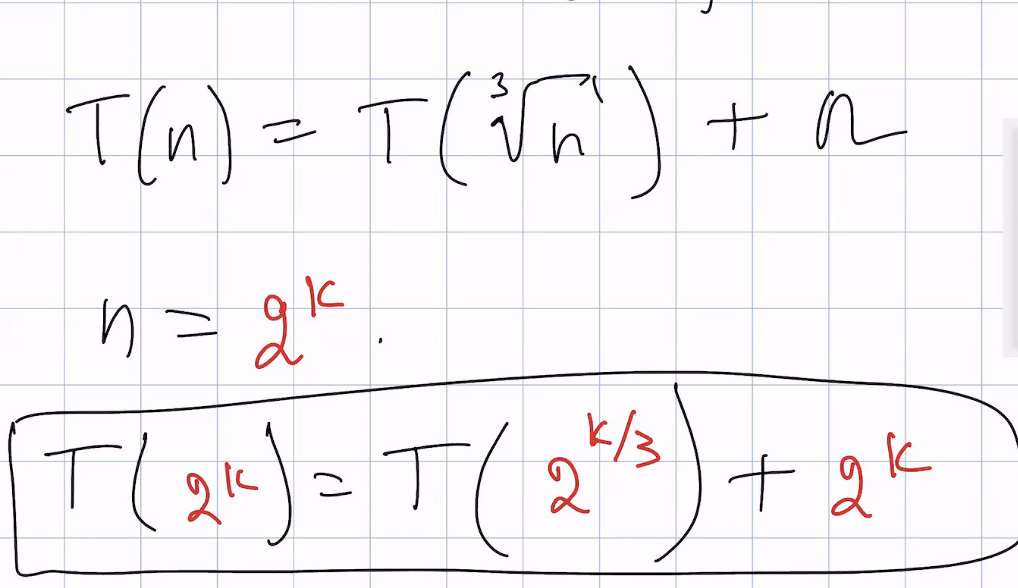 T(n) = T(∛n) + n
n = 2^k .
T(2^k) = T(2^{k/3}) + 2^k